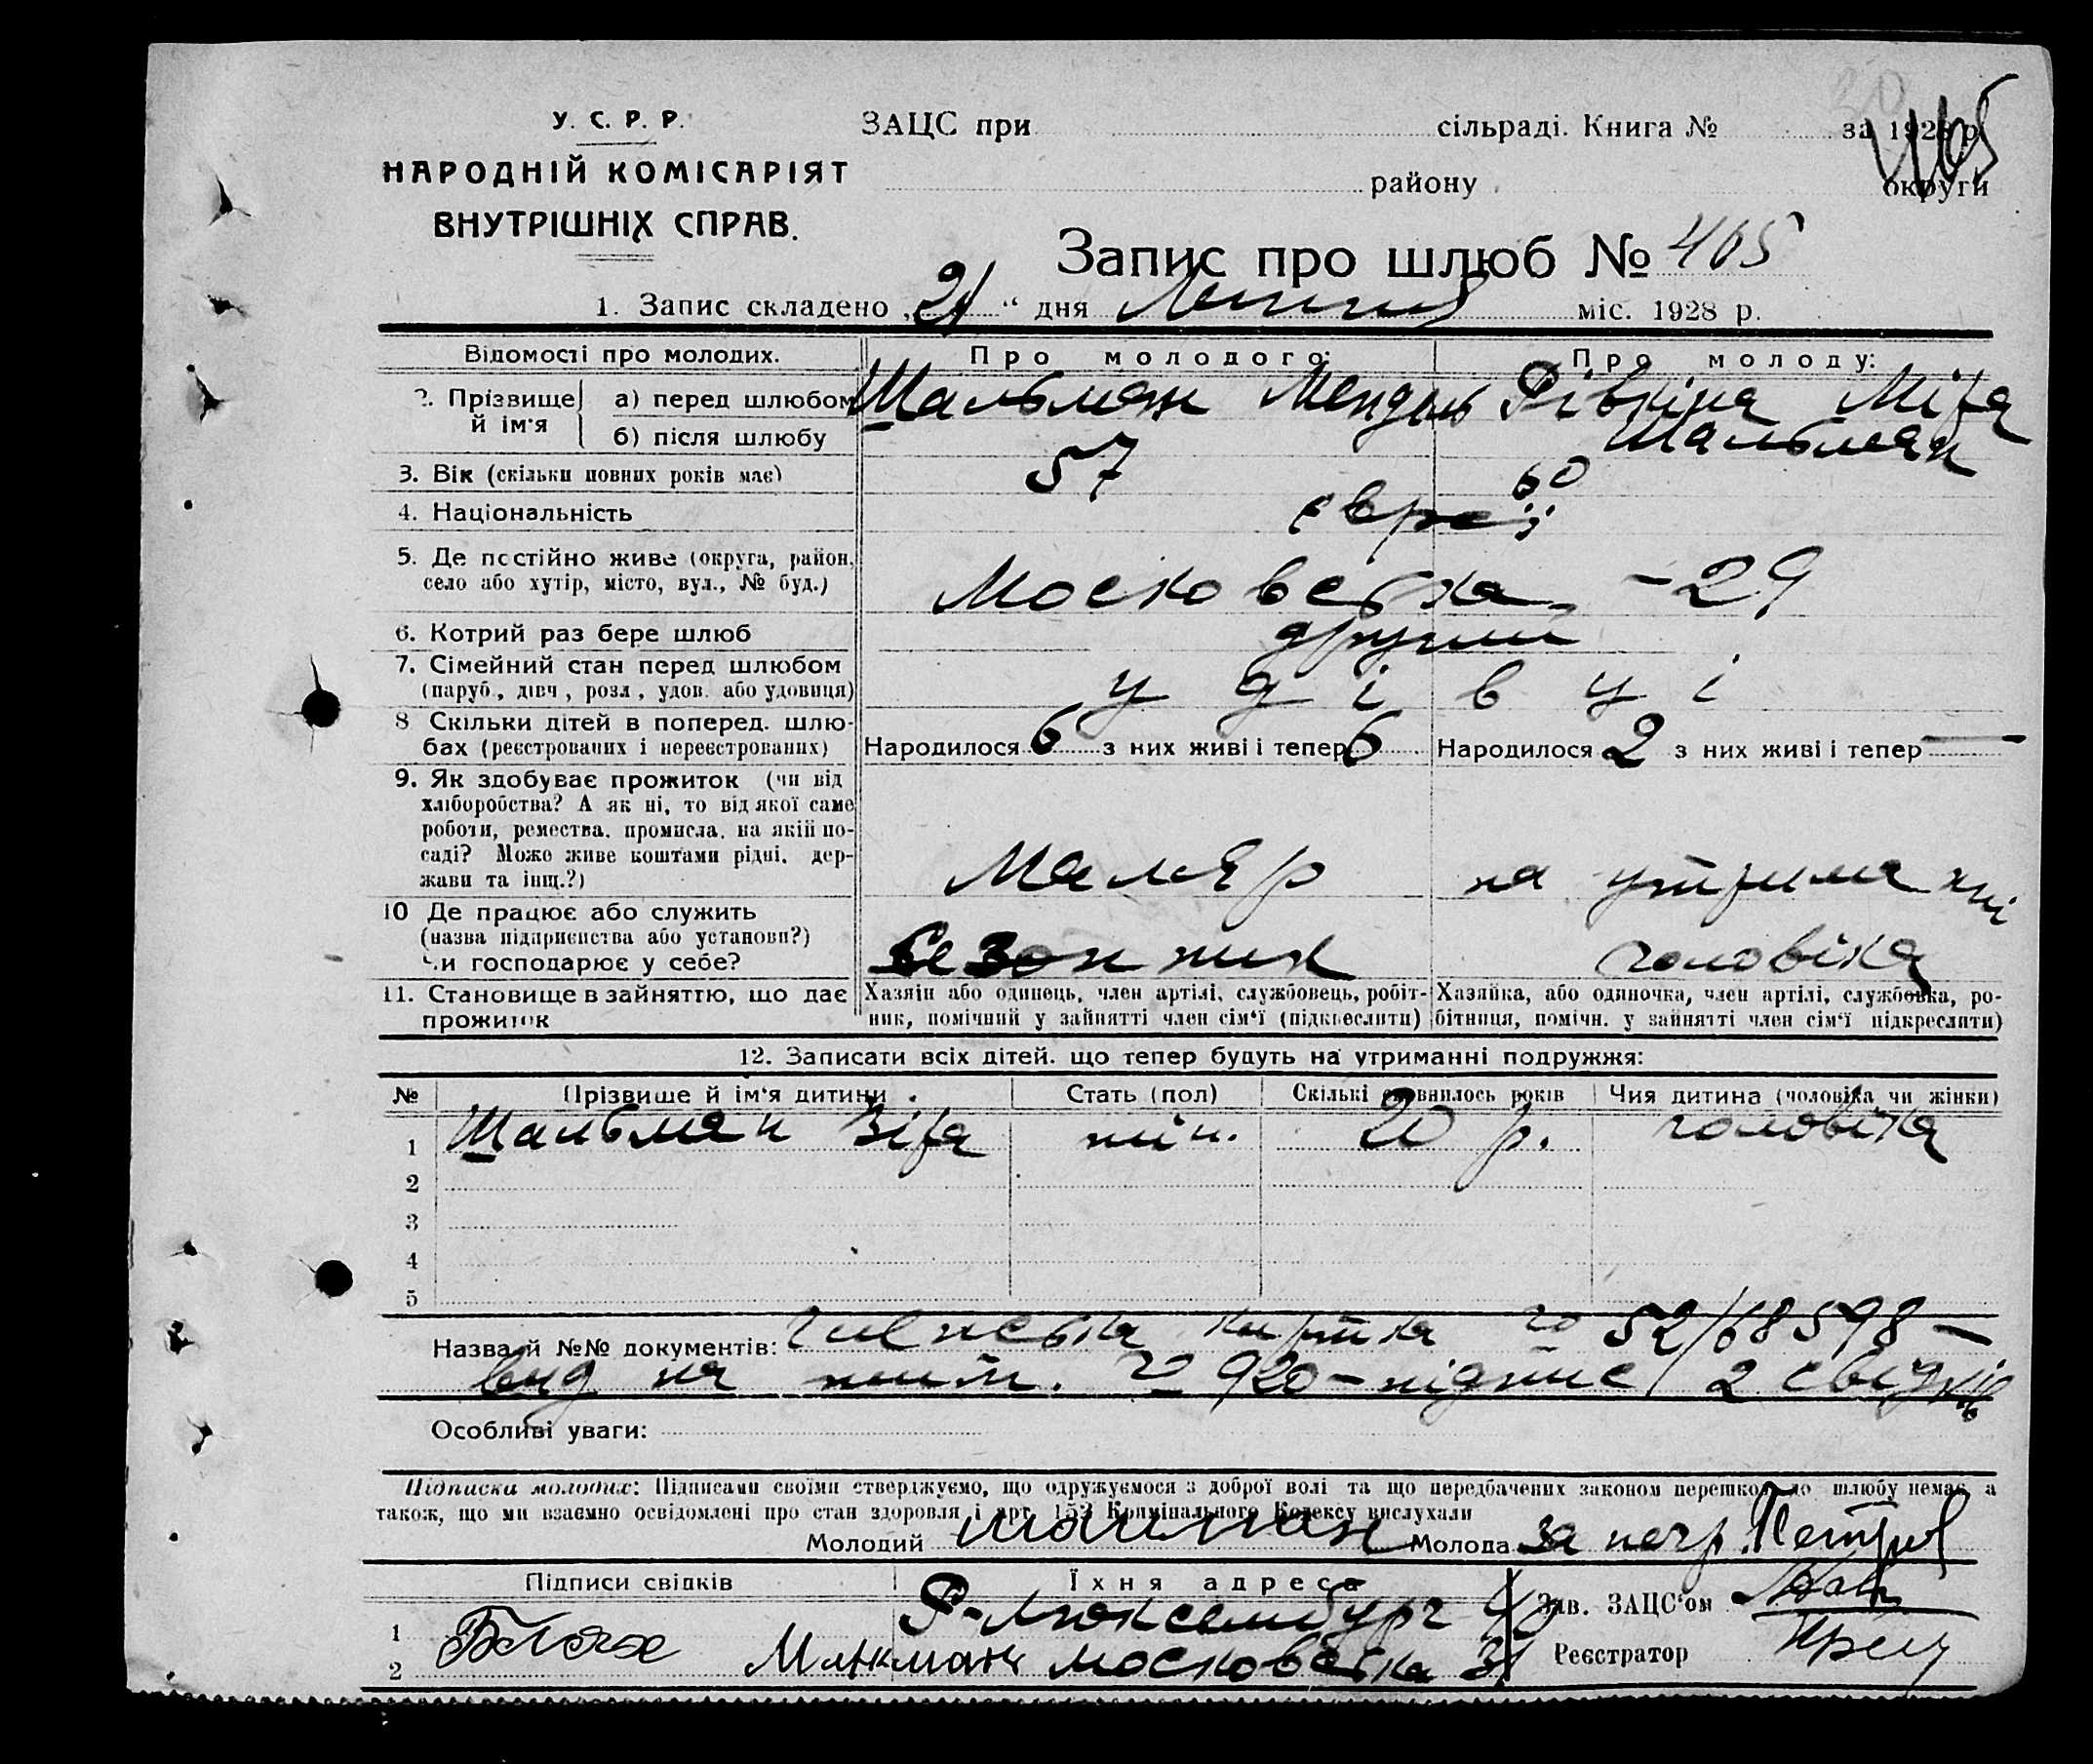 465
У. С. Р. Р.
НАРОДНІЙ КОМІСАРІЯТ
ВНУТРІШНІХ СПРАВ.
ЗАЦС при сільраді. Книга № за 1928 р.
району округи
Запис про шлюб № 465
1. Запис складено „21“ дня Липня міс. 1928 р.
Відомості про молодих. Про молодого: Про молоду:
2. Прізвище й ім'я а) перед шлюбом Шальман Мендель Рівкіна Міра
б) після шлюбу Шальман
3. Вік (скільки повних років має) 57 60
4. Національність євреї
5. Де постійно живе (округа, район, село або хутір, місто, вул., № буд.) Московська - 29
6. Котрий раз бере шлюб другий
7. Сімейний стан перед шлюбом
(паруб., дівч., розл., удов. або удовиця) удівці
8 Скільки дітей в поперед. шлю-
бах (реєстрованих і нереєстрованих) Народилося 6 з них живі і тепер 6 Народилося 2 з них живі і тепер —
9. Як здобуває прожиток (чи від
хліборобства? А як ні, то від якої саме
роботи, ремества, промисла, на якій по-
саді? Може живе коштами рідні, дер-
жави та інщ.?) Маляр на утриманні
10 Де працює або служить
(назва підприємства або установи?)
Чи господарює у себе? Сезонник чоловіка
11. Становище в зайняттю, що дає
прожиток
Хазяїн або одинець, член артілі, службовець, робіт-
ник, помічний у зайнятті член сім'ї (підкреслити)
Хазяйка, або одиночка, член артілі, службовка, ро-
бітниця, помічн. у зайнятті член сім'ї підкреслити)
12. Записати всіх дітей. що тепер будуть на утриманні подружжя:
№ Прізвище й ім'я дитини Стать (пол) Скількі сповнилось років Чия дитина (чоловіка чи жінки)
1 Шальман Зіра жін. 20 р. чоловіка
2
3
4
5
Назва й №№ документів: членська картка № 52/68598 —
вид на жит. № 920 - підпис 2 свідків
Особливі уваги:
Підписки молодих: Підписами своїми стверджуємо, що одружуємося з доброї волі та що передбачених законом перешкод до шлюбу немає, а
також, що ми взаємно освідомлені про стан здоровля і арт. 153 Кримінального Кодексу вислухали
Молодий Шальман Молода За негр. Петров
Підписи свідків Їхня адреса Зав. ЗАЦС'ом
1 Р-Люксембург
2 Московська 31 Реєстратор